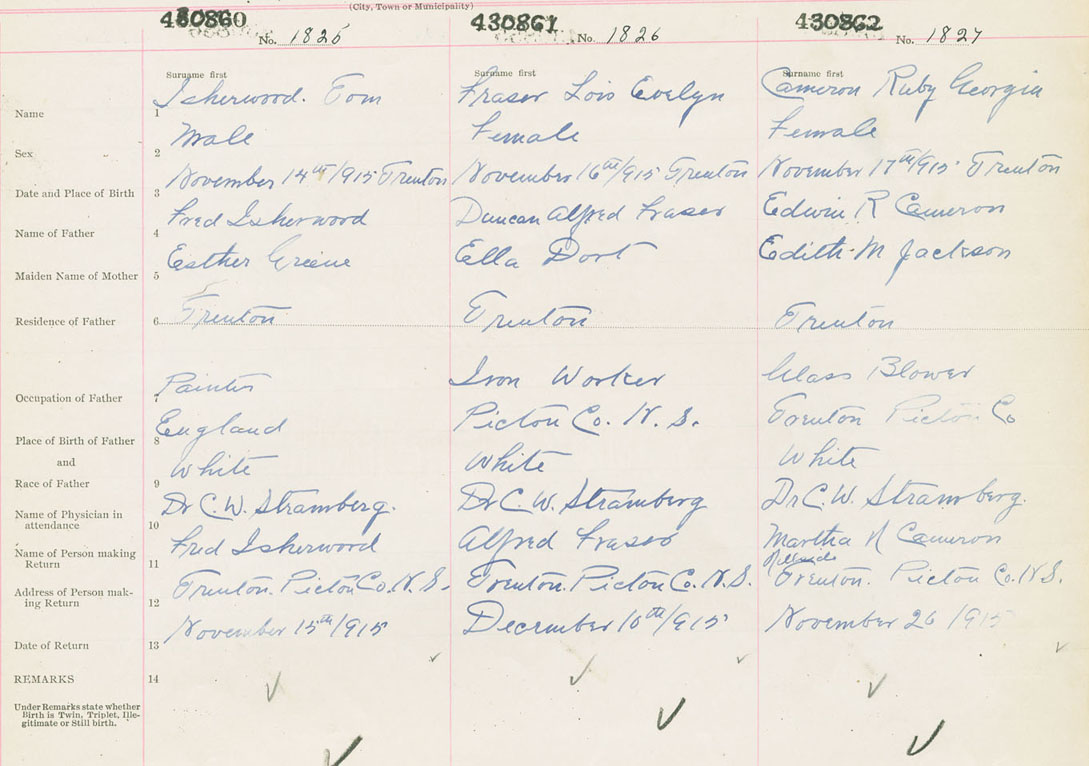 (City, Town or Municipality)
430860 430861 430862
No. 1825 No. 1826 No. 1827
Surname first Surname first Surname first
Name 1 Isherwood. Tom Fraser Lois Evelyn Cameron Ruby Georgia
Sex 2 Male Female Female
Date and Place of Birth 3 November 14th/915 Trenton November 16th/915 Trenton November 17th/915 Trenton
Name of Father 4 Fred Isherwood Duncan Alfred Fraser Edwin R Cameron
Maiden Name of Mother 5 Esther Greene Ella Dort Edith M Jackson
Residence of Father 6 Trenton Trenton Trenton
Occupation of Father Painter Iron Worker Glass Blower
Place of Birth of Father 8 England Picton Co. N.S. Trenton Picton Co
and
Race of Father 9 White White White
Name of Physician in
attendance 10 Dr C.W. Stramberg. Dr C.W. Stramberg Dr C.W. Stramberg.
Name of Person making
Return 11 Fred Isherwood Alfred Fraser Martha Cameron
Address of Person mak-
ing Return 12 Trenton. Picton Co. N.S. Trenton. Picton Co. N.S. Trenton. Picton Co. N.S.
Date of Return 13 November 15th/915 December 10th/915 November 26 1915
REMARKS 14
Under Remarks state whether
Birth is Twin, Triplet, Ille-
gitimate or Still birth.